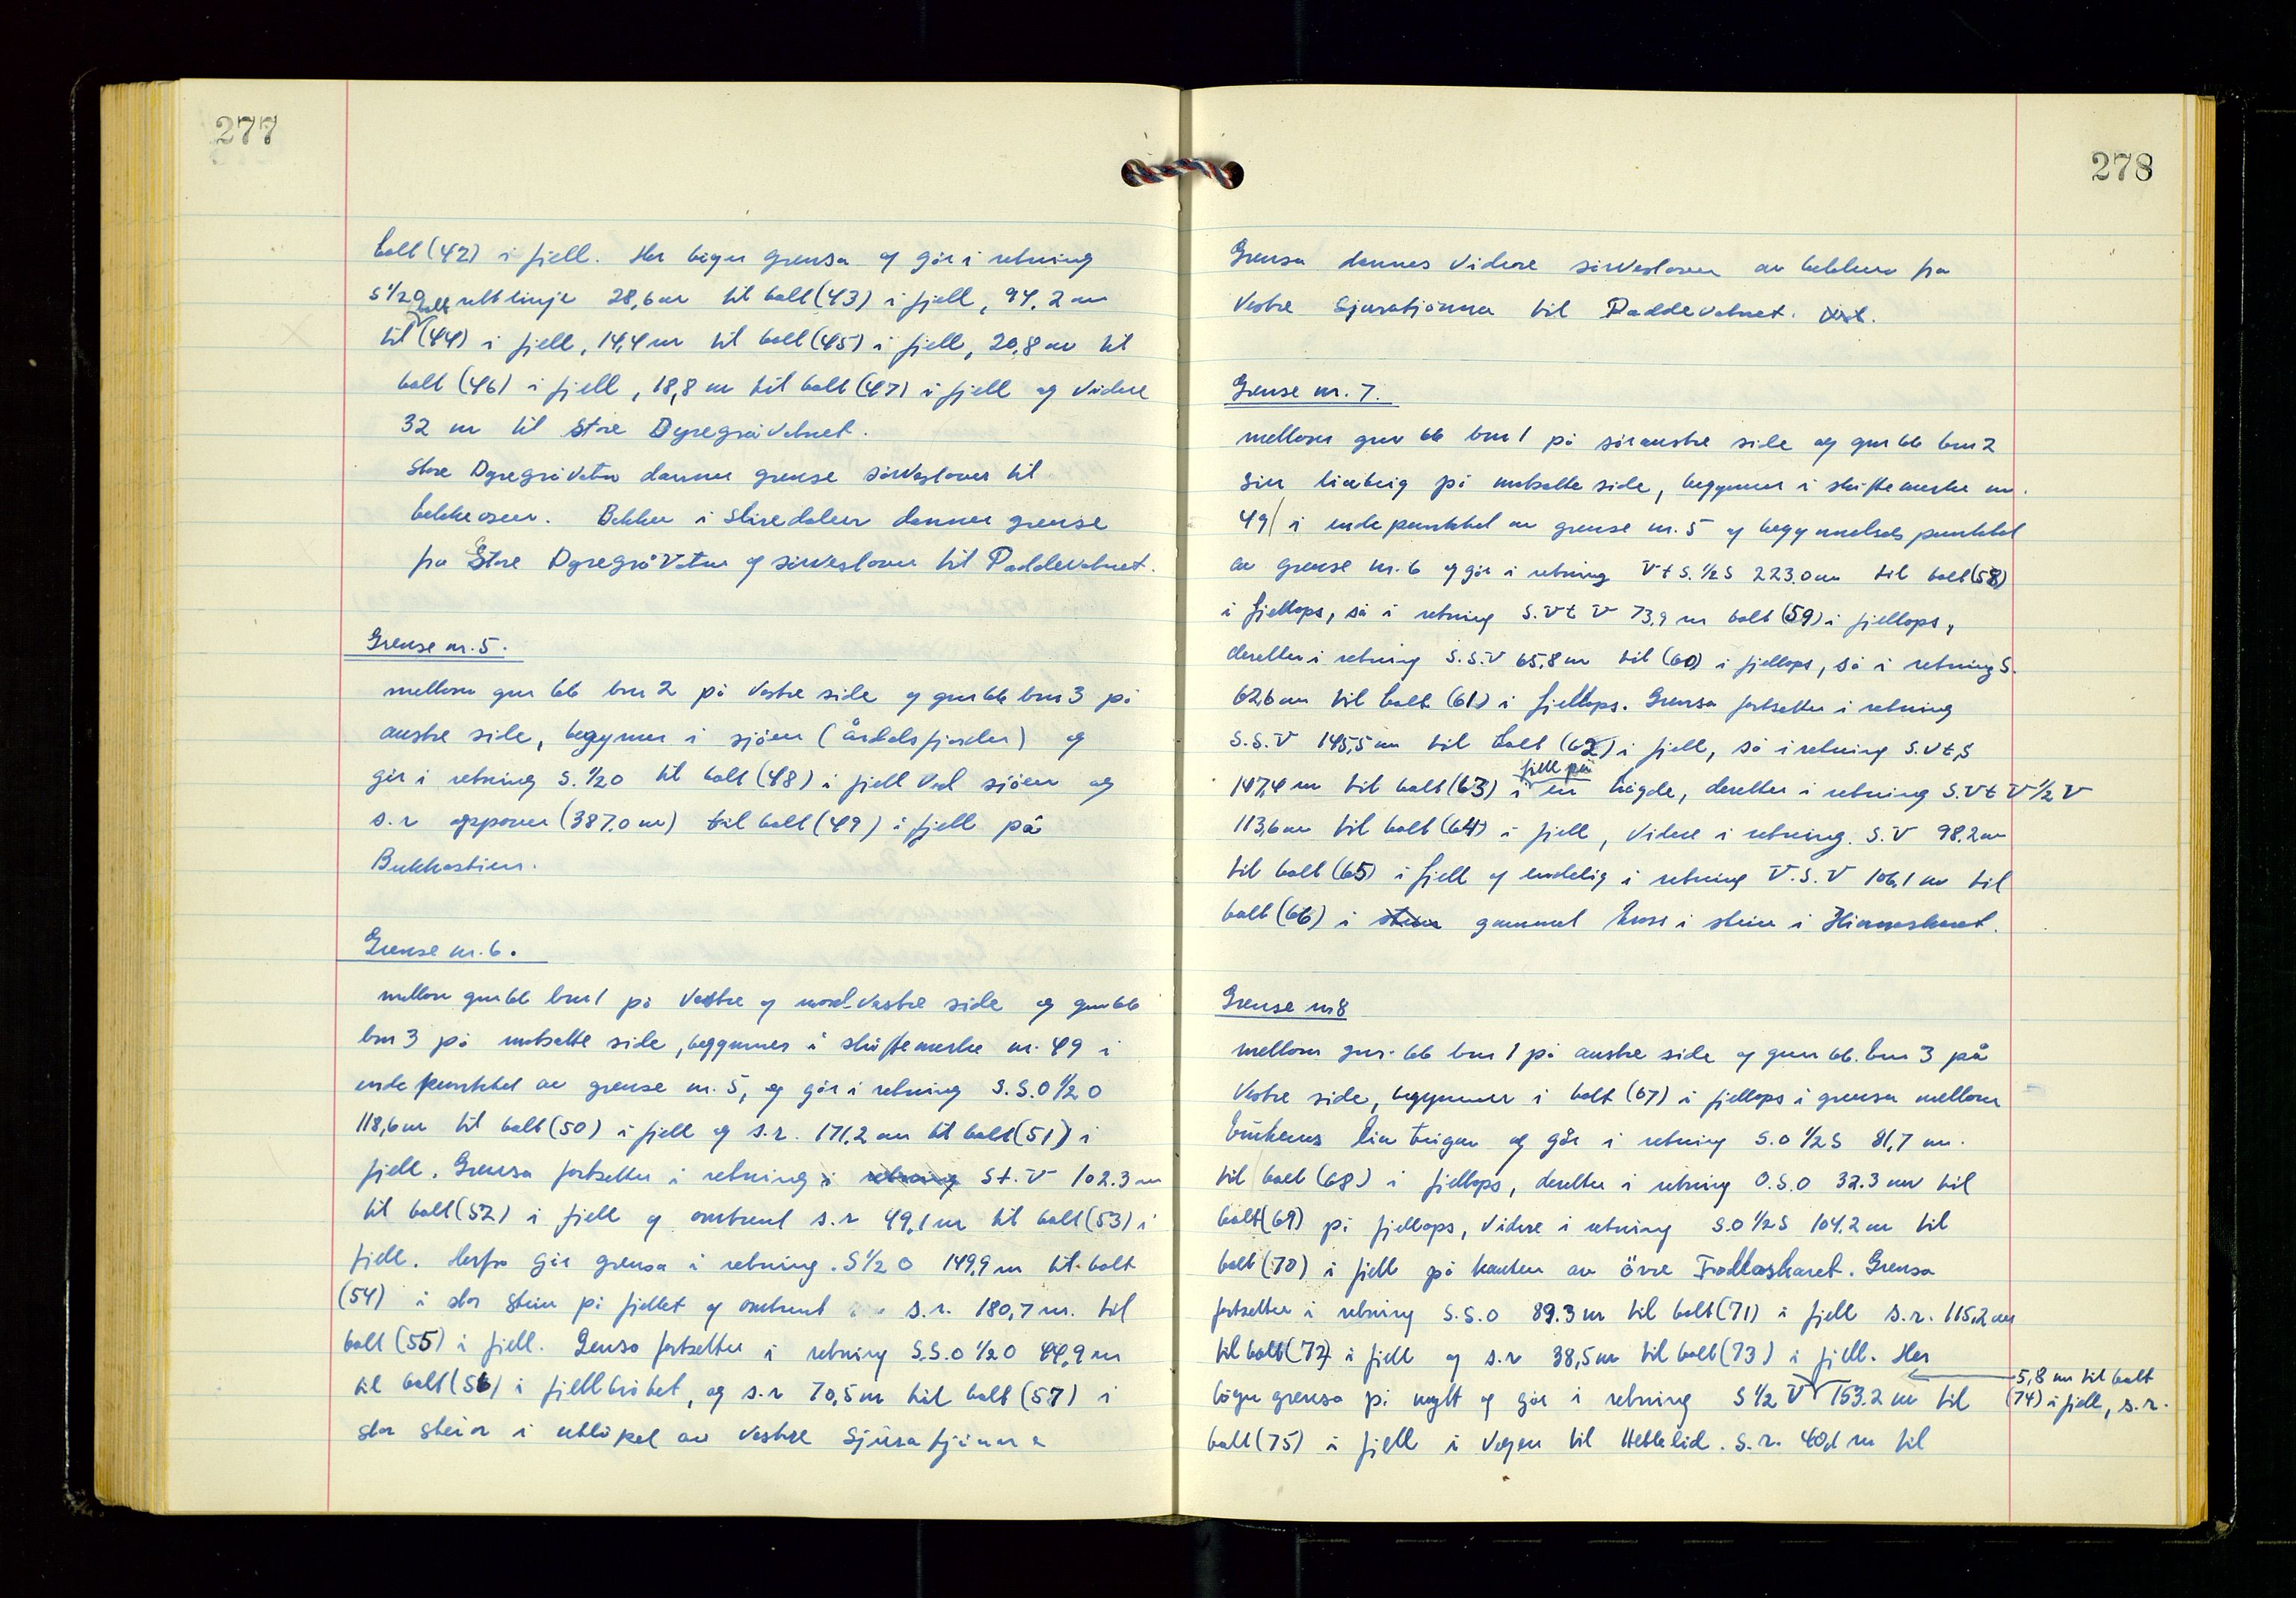 277
bolt (42) i fjell. Her bøyer grensa og går i retning
S ½ O rett linje 28,6 m til bolt (43) i fjell, 94,2 m
til bolt (44) i fjell, 14,4 m til bolt (45) i fjell, 20,8 m til
bolt (46) i fjell, 18,8 m til bolt (47) i fjell og videre
32 m til Store Dyregråvatnet.
Store Dyregråvatn danner grense sørvestover til
bekkeosen. Bekken i Skiredalen danner grense
fra Store Dyregråvatn og sørvestover til Paddevatnet.
Grense nr. 5.
mellom gnr 66 bnr 2 på vestre side og gnr 66 bnr 3 på
austre side, begynner i sjøen (Årdalsfjorden) og
går i retning S. ½ O til bolt (48) i fjell ved sjøen og
s.r oppover (387.0 m) til bolt (49) i fjell på
Bukkastien.
Grense nr. 6.
mellom gnr 66 bnr 1 på vestre og nord-vestre side og gnr 66
bnr 3 på motsatte side, begynner i skiftemerke nr. 49 i
endepunktet av grense nr. 5, og går i retning S.S.O ½ O
118,6 m til bolt (50) i fjell og s.r. 171,2 m til bolt (51) i
fjell. Grensa fortsetter i retning i retning S t. V 102.3 m
til bolt (52) i fjell og omtrent s.r 49,1 m til bolt (53) i
fjell. Herfra går grensa i retning. S ½ O 149,9 m til bolt
(54) i stor stein på fjellet og omtrent s.r. 180,7 m. til
bolt (55) i fjell. Gensa fortsetter i retning S.S.O ½ O 44,9 m
til bolt (56) i fjellbrøtet, og s.r 70,5 m til bolt (57) i
stor stein i utløpet av vestre Sjuratjønna
278
Grensa dannes videre sørvestover av bekken fra
vestre Sjuratjønna til Paddevatnet.
Grense nr. 7.
mellom gnr 66 bnr 1 på søraustre side og gnr 66 bnr 2
sin liateig på motsatte side, begynner i skiftemerke nr.
49 i endepunktet av grense nr. 5 og begynnelsespunktet
av grense nr. 6 og går i retning V t S. ½ S 223.0 m til bolt (58)
i fjellops, så i retning S.V t V 73,9 m bolt (59) i fjellops,
deretter i retning S.S.V 65,8 m til (60) i fjellops, så i retning S.
62,6 m til bolt (61) i fjellops. Grensa fortsetter i retning
S.S.V 145,5 m til bolt (62) i fjell, så i retning S.V t. S
147,4 m til bolt (63) i fjell på en høgde, deretter i retning S.V t V ½ V
113,6 m til bolt (64) i fjell, videre i retning. S.V 98,2 m
til bolt (65) i fjell og endelig i retning V.S.V 106,1 m til
bolt (66) i stein gammel kross i stein i Hinnaskaret.
Grense nr 8
mellom gnr. 66 bnr 1 på austre side og gnr 66. bnr 3 på
vestre side, begynner i bolt (67) i fjellops i grensa mellom
brukenes liateigar og går i retning S.O ½ S 81,7 m.
til bolt (68) i fjellops, deretter i retning O.S.O 32.3 m til
bolt (69) på fjellops, videre i retning S.O ½ S 104,2 m til
bolt (70) i fjell på kanten av Övre Fodlaskaret. Grensa
fortsetter i retning S.S.O 89.3 m til bolt (71) i fjell s.r. 115,2 m
til bolt (72) i fjell og s.r 38,5 m til bolt (73) i fjell. Her
bøyer grensa på nytt og går i retning S ½ V 153.2 m til
5,8 m til bolt
(74) i fjell, s.r.
bolt (75) i fjell i vegen til Hetlelid. s.r. 40,1 m til